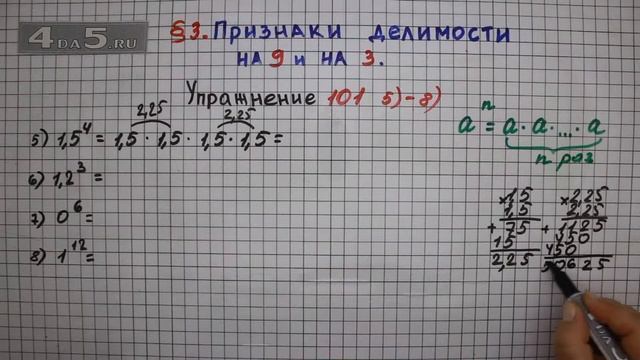 4DA5.RU
§3. Признаки делимости
на 9 и на 3.
Упражнение 101 5)-8)
2,25 2,25
5) 1,5⁴ = 1,5 · 1,5 · 1,5 · 1,5 =
6) 1,2³ =
7) 0⁶ =
8) 1¹² =
aⁿ = a · a · ... · a
n раз
×1,5
1,5
+75
15
2,25
×2,25
2,25
+1125
450
450
50625